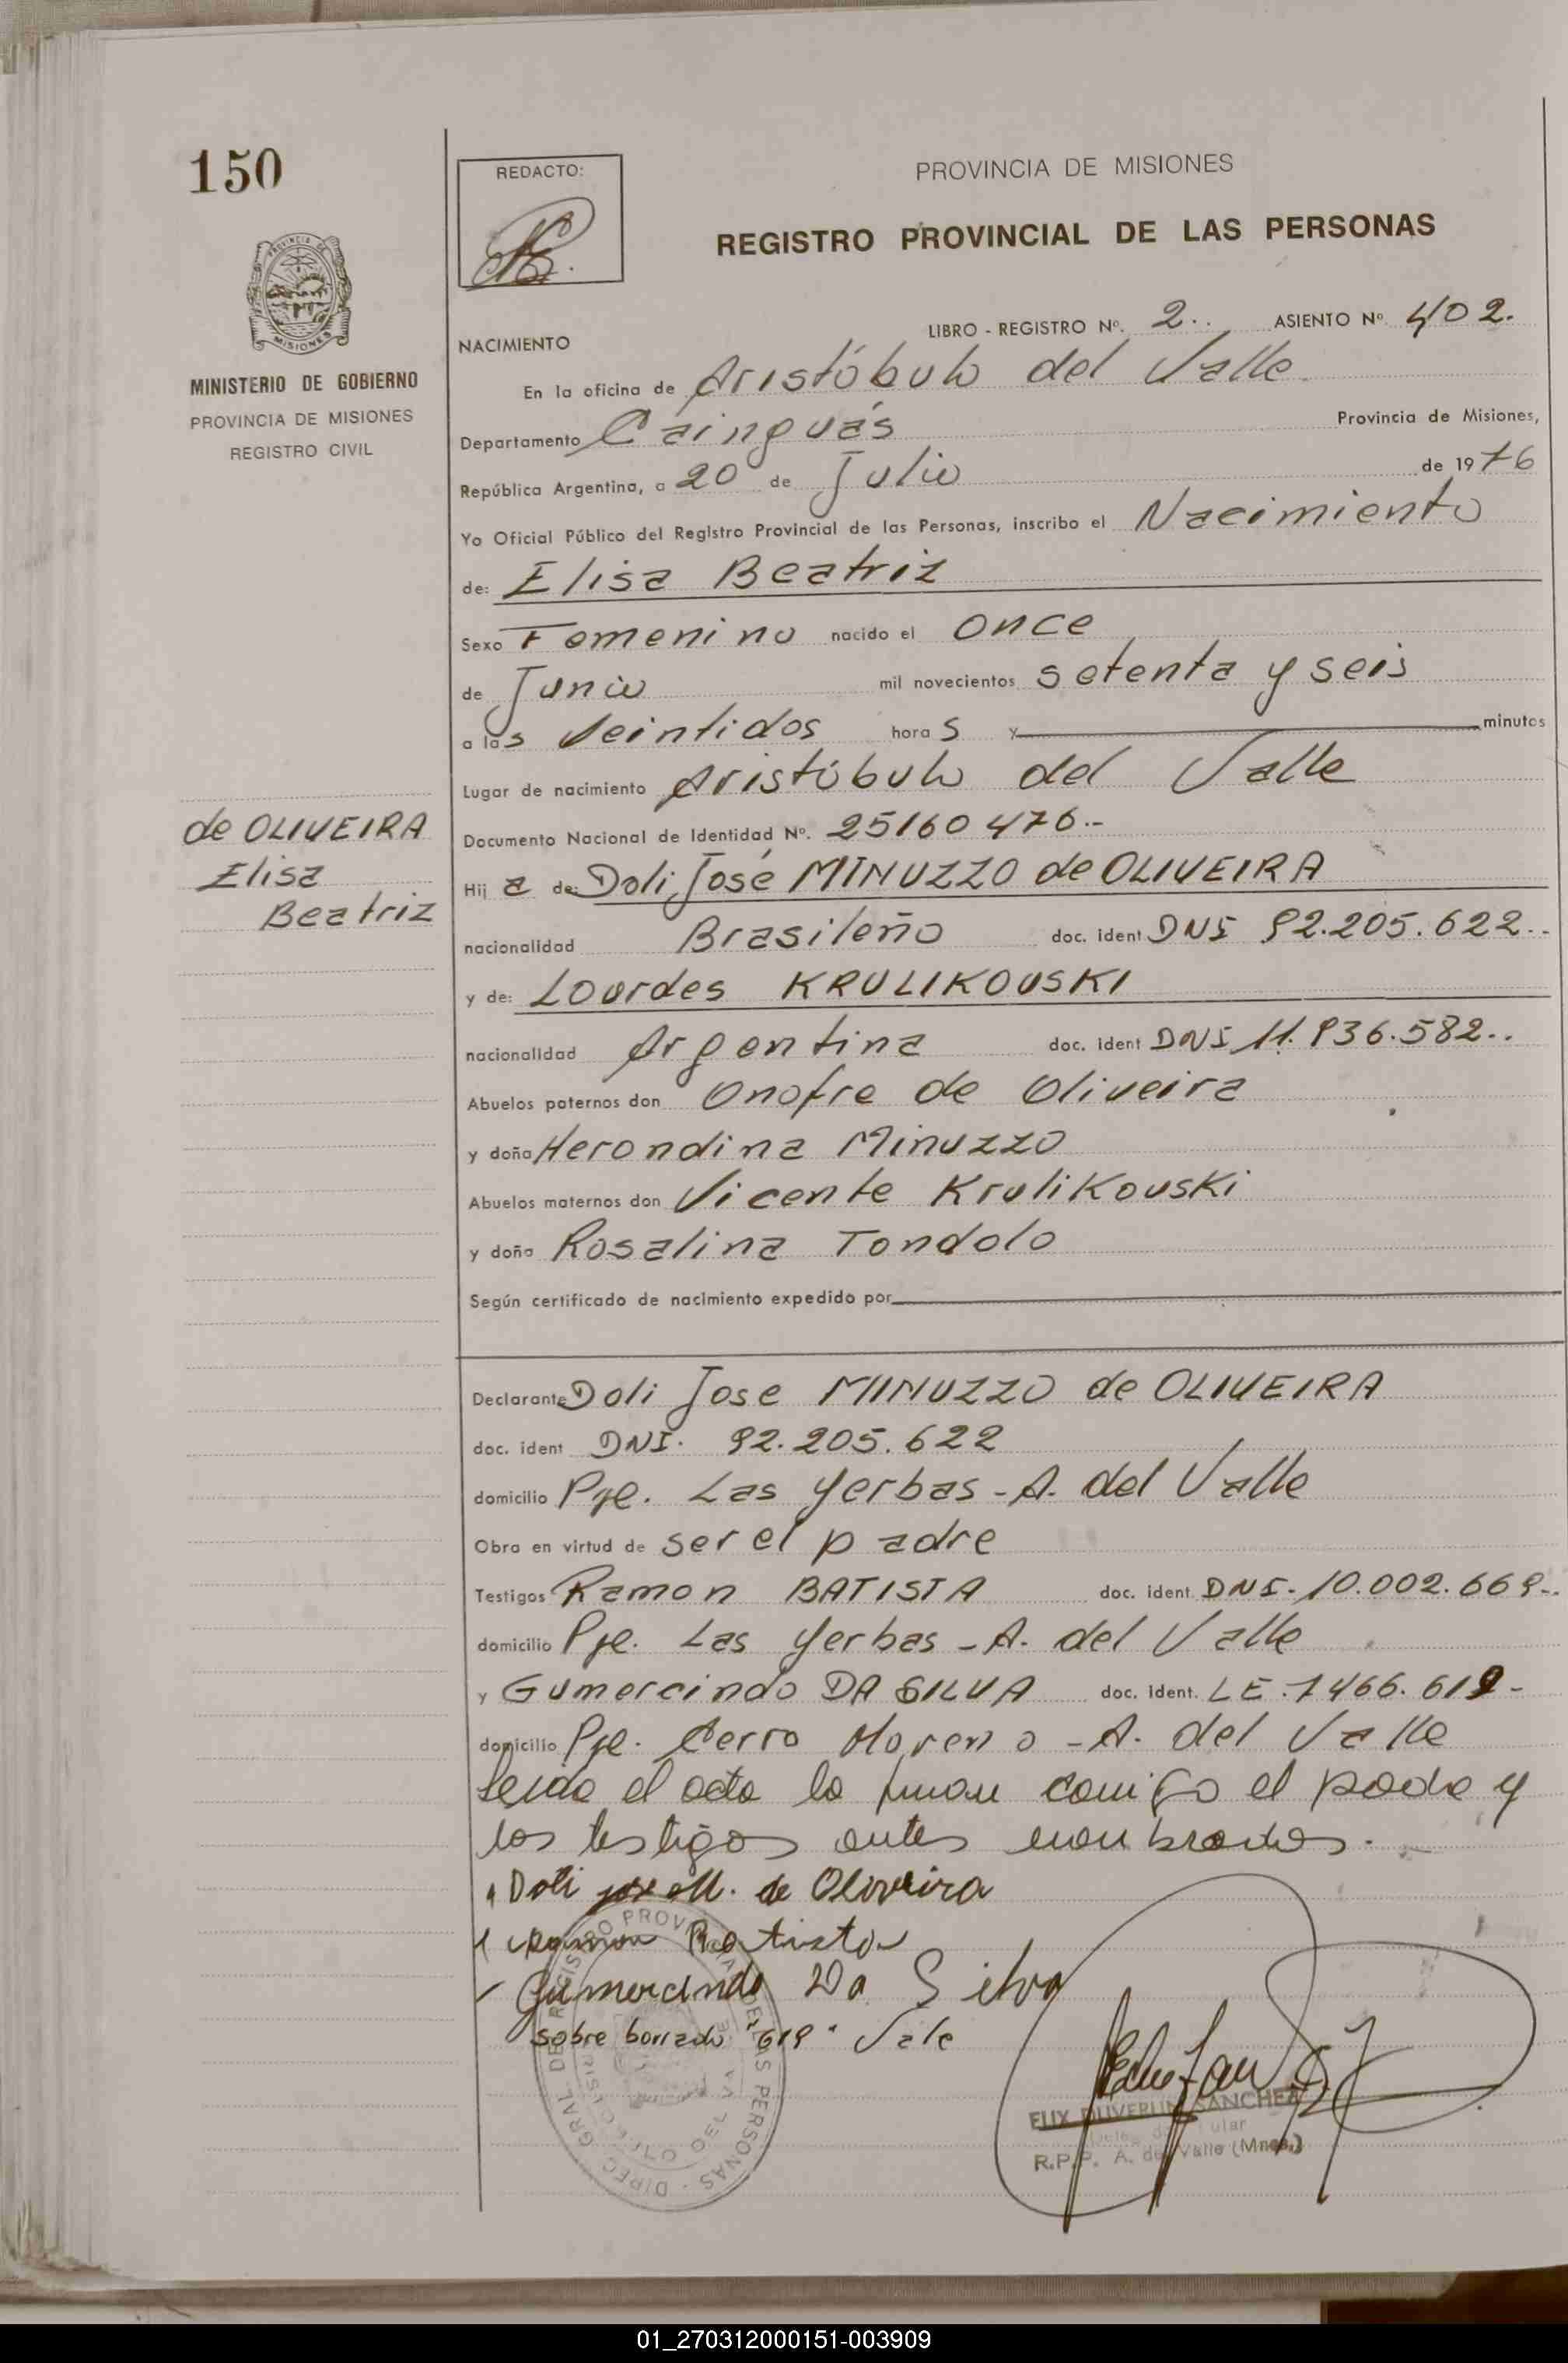 150
REDACTO:
PROVINCIA DE MISIONES
REGISTRO PROVINCIAL DE LAS PERSONAS
MINISTERIO DE GOBIERNO
PROVINCIA DE MISIONES
REGISTRO CIVIL
LIBRO - REGISTRO Nº. 2.. ASIENTO Nº 402.
NACIMIENTO
En la oficina de Aristóbulo del Valle
Departamento Cainguás Provincia de Misiones,
República Argentina, a 20 de Julio de 1976
Yo Oficial Público del Registro Provincial de las Personas, inscribo el Nacimiento
de: Elisa Beatriz
Sexo Femenino nacido el once
de Junio mil novecientos setenta y seis
a las veintidos horas y minutos
Lugar de nacimiento Aristóbulo del Valle
de OLIVEIRA
Elisa
Beatriz
Documento Nacional de Identidad Nº. 25160476.-
Hija de: Doli José MINUZZO de OLIVEIRA
nacionalidad Brasileño doc. ident DNI 92.205.622..
y de: Lourdes KRULIKOUSKI
nacionalidad Argentina doc. ident DNI 11.936.582..
Abuelos paternos don Onofre de Oliveira
y doña Herondina Minuzzo
Abuelos maternos don Vicente Krulikouski
y doña Rosalina Tondolo
Según certificado de nacimiento expedido por
Declarante Doli Jose MINUZZO de OLIVEIRA
doc. ident DNI. 92.205.622
domicilio Pje. Las Yerbas - A. del Valle
Obra en virtud de ser el padre
Testigos Ramon BATISTA doc. ident. DNI- 10.002.669..
domicilio Pje. Las Yerbas - A. del Valle
y Gumercindo DA SILVA doc. ident. LE.7466.619-
domicilio Pje. Cerro Moreno - A. del Valle
Leida el acta la firman conmigo el padre y
los testigos antes nombrados.
Doli jose M. de Oliveira
Ramon Batista
Gumercindo Da Silva
sobre borrado "619" Vale
SANCHEZ
R.P.P. A. del Valle (Mnes.)
01_270312000151-003909